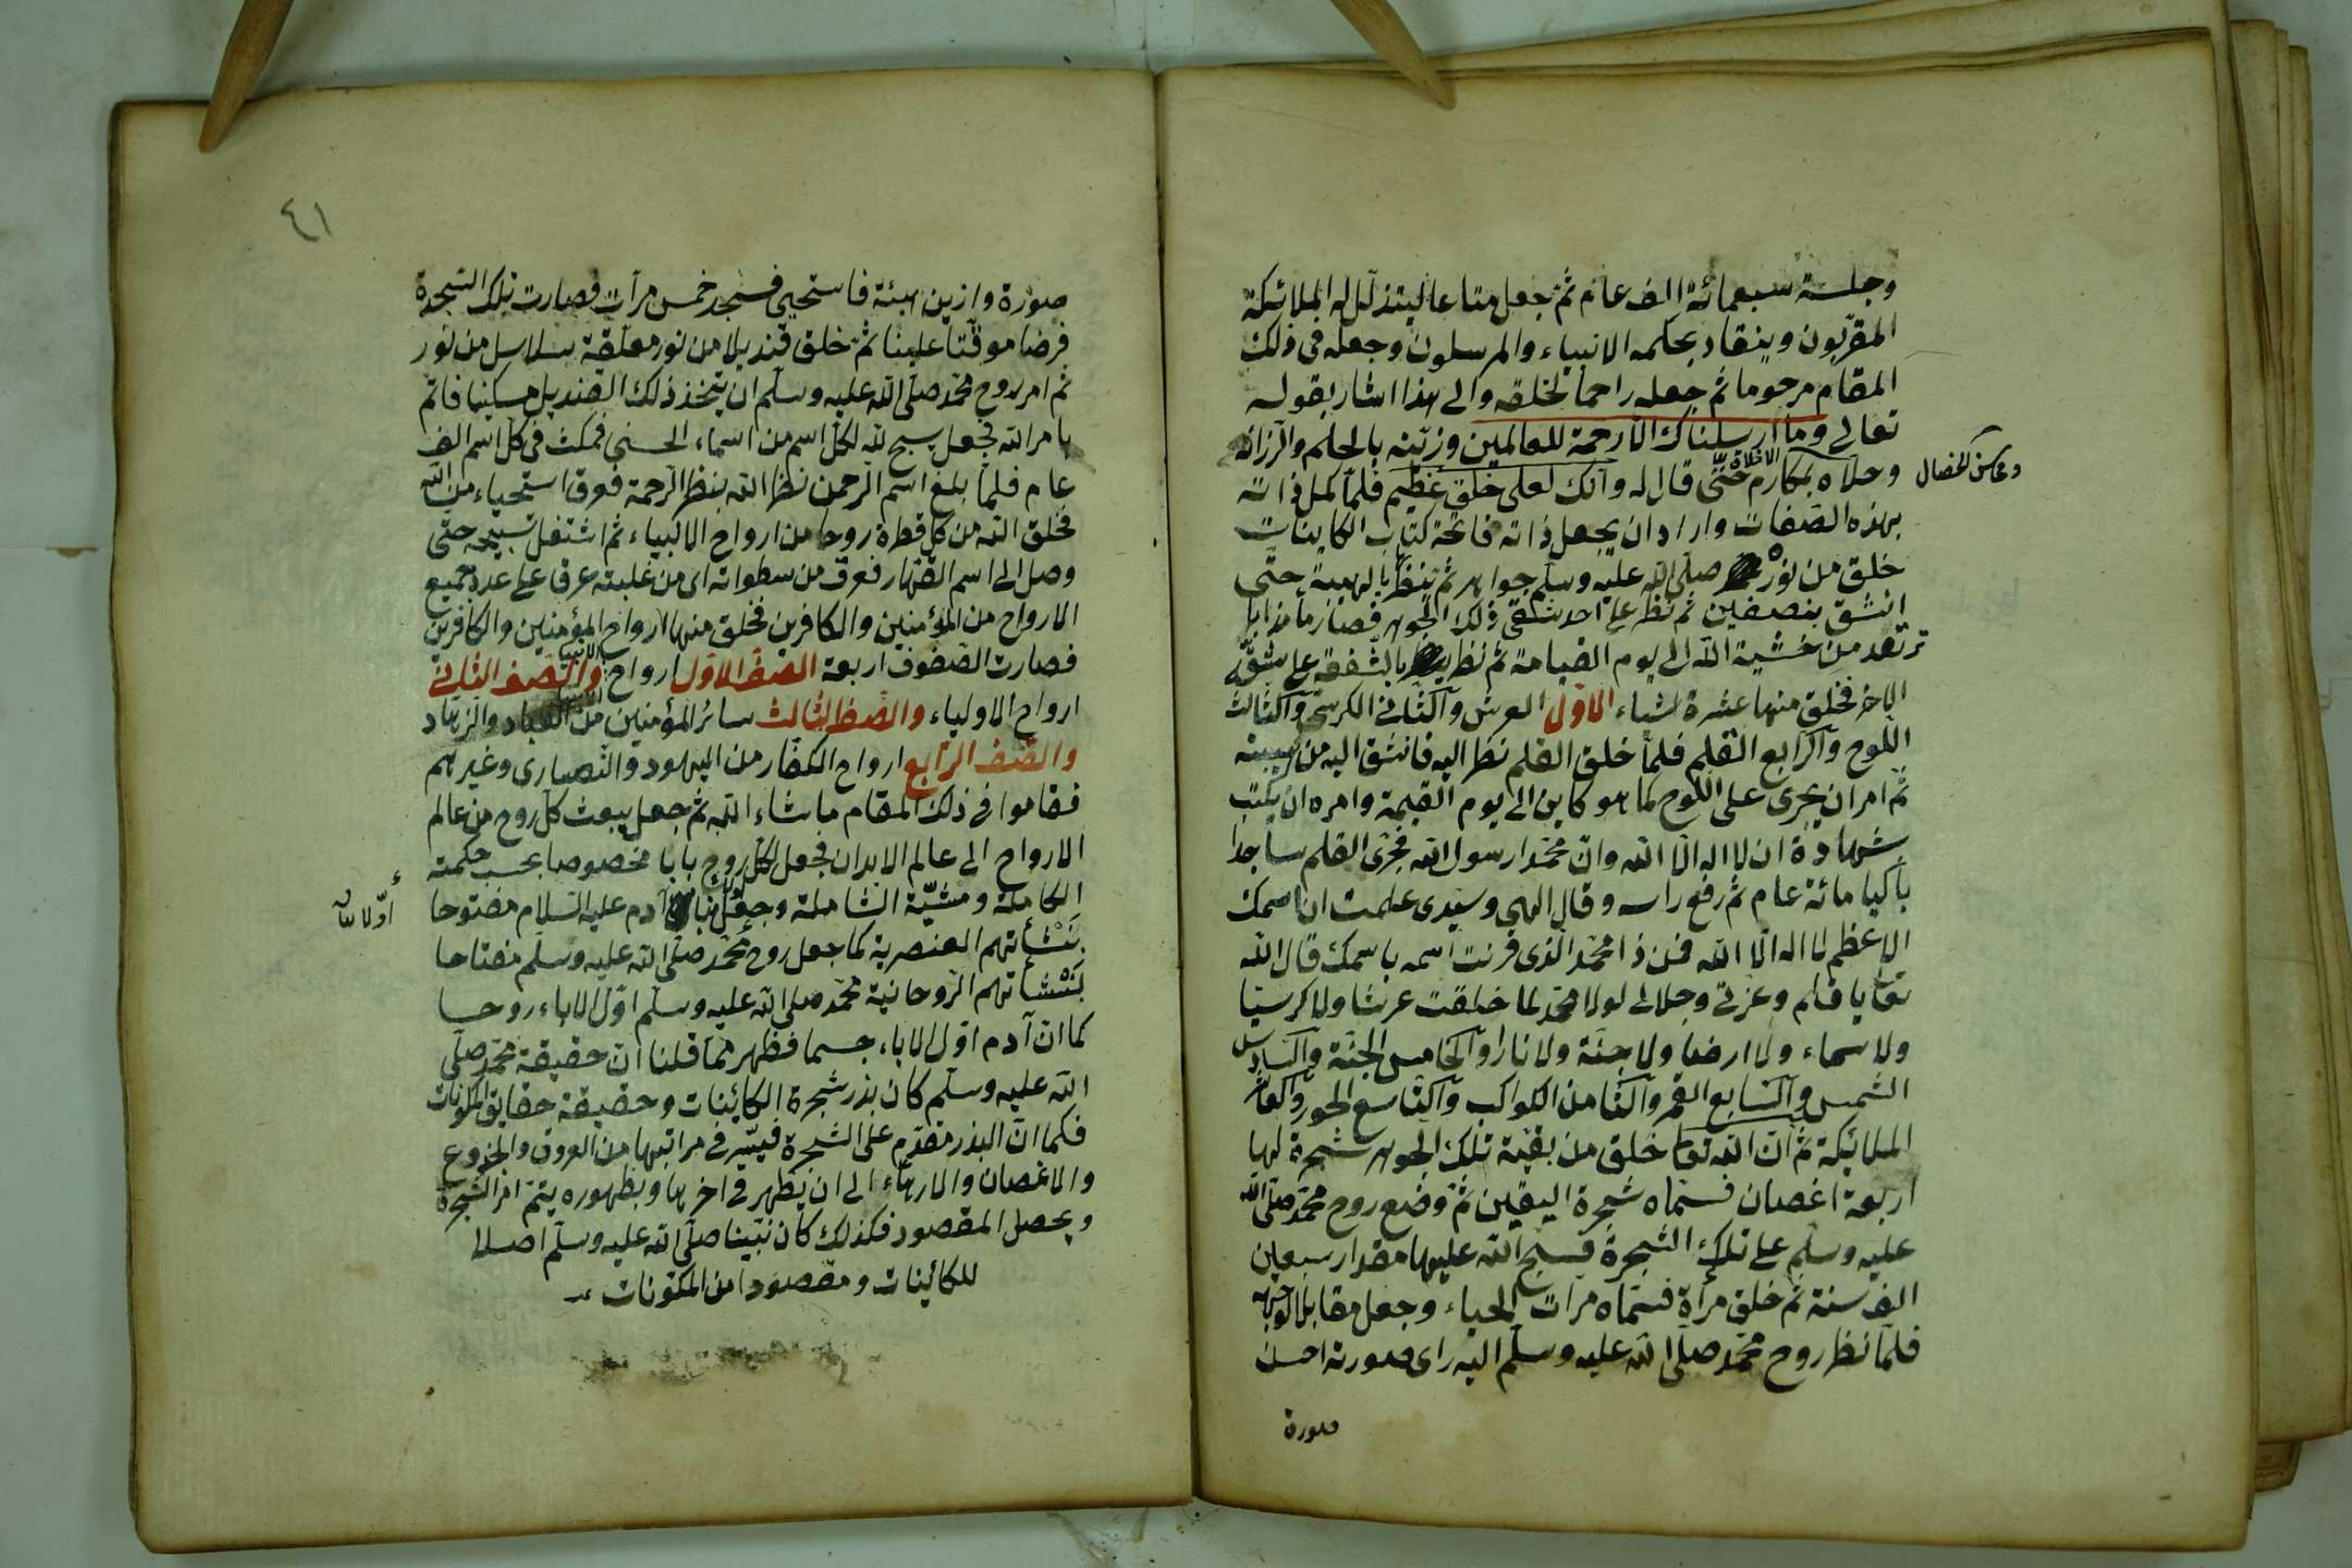 وجلسة سبعمائة الف عام ثم جعل متاعا ليتذلل له الملائكة
المقربون وينقاد بحكمه الانبياء والمرسلون وجعله فى ذلك
المقام مرحوما ثم جعله راحما لخلقه والى هذا اشار بقوله
تعالى وما ارسلناك الا رحمة للعالمين وزينه بالحلم والرزانة
وحلاه بمكارم الاخلاق حتى قال له وانك لعلى خلق عظيم فلما كمل ذاته
ومحاسن الخصال
بهذه الصفات واراد ان يجعل ذاته فاتحة كتاب الكاينات
خلق من نوره صلى الله عليه وسلم جواهر ثم ينظر بالهيبة حتى
انشق بنصفين ثم نظر على احد شقى ذلك الجوهر فصار ماء ذائبا
ترتعد من خشية الله الى يوم القيامة ثم نظر بالشفقة على شق
الاخر فخلق منها عشرة اشياء الاول العرش والثانى الكرسى والثالث
اللوح والرابع القلم فلما خلق القلم نظر اليه فانشق اليه من هيبته
ثم امر ان يجرى على اللوح كما هو كاين الى يوم القيمة وامره ان يكتب
شهادة ان لا اله الا الله وان محمدا رسول الله فجرى القلم ساجدا
باكيا مائة عام ثم رفع راسه وقال الهى وسيدى علمت ان اسمك
الاعظم لا اله الا الله فمن ذا محمد الذى قرنت اسمه باسمك قال الله
تعا يا قلم وعزتى وجلالى لولا محمد لما خلقت عرشا ولا كرسيا
ولا سماء ولا ارضا ولا جنة ولا نارا والخامس الجنة والسادس
الشمس والسابع القمر والثامن الكواكب والتاسع الحور والعاشر
الملائكة ثم ان الله تعا خلق من بقية تلك الجوهر شجرة لها
اربعة اغصان فسماه شجرة اليقين ثم وضع روح محمد صلى الله
عليه وسلم على تلك الشجرة فسبح الله عليها مقدار سبعين
الف سنة ثم خلق مرأة فسماه مرآت الحياء وجعل مقابلا لوجهه
فلما نظر روح محمد صلى الله عليه وسلم اليه راى صورته احسن
صورة
٤١
صورة وازين هيئة فاستحيى فسجد خمس مرآت فصارت تلك السجدة
فرضا موقتا علينا ثم خلق قنديلا من نور معلقة بسلاسل من نور
ثم امر روح محمد صلى الله عليه وسلم ان يتخذ ذلك القنديل مسكنا فاتم
بامر الله فجعل يسبح لله لكل اسم من اسماء الحسنى فمكث فى كل اسم الف
عام فلما بلغ اسم الرحمن نظر الله بنظر الرحمة فعرق استحياء من الله
فخلق الله من كل قطرة روحا من ارواح الانبياء ثم اشتغل تسبيحه حتى
وصل الى اسم القهار فعرق من سطواته اى من غلبته عرقا على عدد جميع
الارواح من المؤمنين والكافرين فخلق منها ارواح المؤمنين والكافرين
فصارت الصفوف اربعة الصف الاول ارواح الانبياء والصف الثانى
ارواح الاولياء والصف الثالث سائر المؤمنين من العباد والزهاد
والصف الرابع ارواح الكفار من اليهود والنصارى وغيرهم
فقاموا فى ذلك المقام ما شاء الله ثم جعل يبعث كل روح من عالم
الارواح الى عالم الابدان فجعل لكل روح بابا مخصوصا بحسب حكمته
الكاملة ومشيّة الشاملة وجعل باب آدم عليه السلام مفتوحا
بنشأتهم العنصرية كما جعل روح محمد صلى الله عليه وسلم مفتاحا
بنشأتهم الروحانية محمد صلى الله عليه وسلم اول الاباء روحا
كما ان آدم اول الاباء جسما فظهر مما قلنا ان حقيقة محمد صلى
الله عليه وسلم كان بذر شجرة الكائنات وحقيقة حقايق المكونات
فكما ان البذر مقدم على الشجرة فيسير فى مراتبها من العروق والجزوع
والاغصان والازهاء الى ان يظهر فى اخرها وبظهوره يتم امر الشجرة
ويحصل المقصود فكذلك كان نبينا صلى الله عليه وسلم اصلا
للكائينات ومقصودا من المكونات